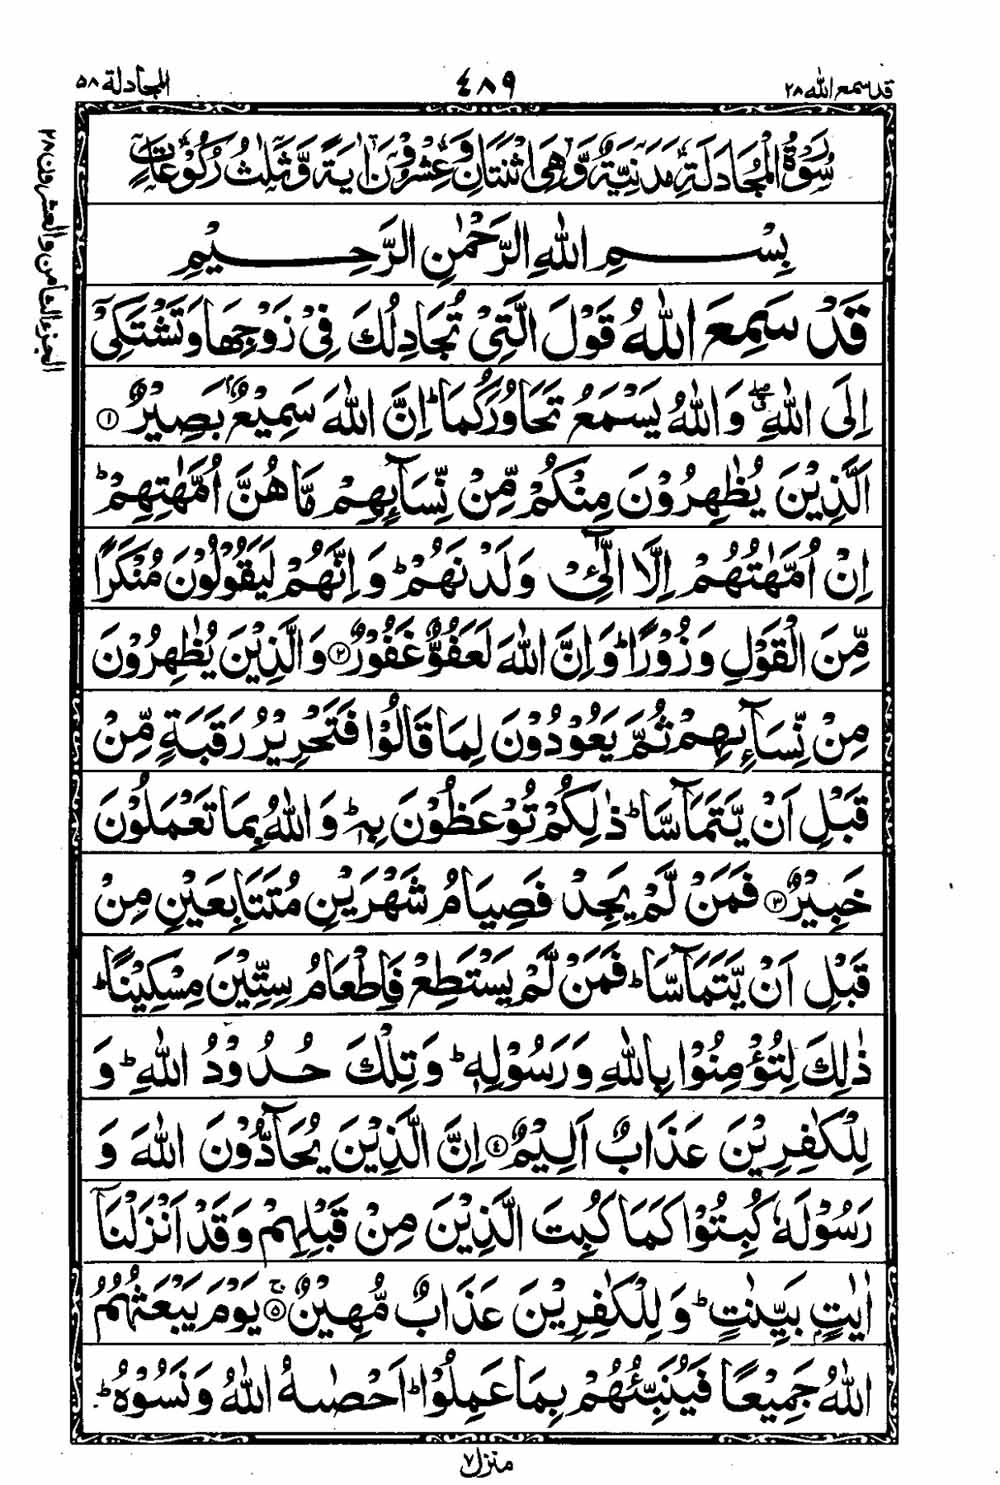 قد سمع الله ٢٨
٤٨٩
المجادلة ٥٨
الجزء الثامن والعشرون ٢٨
سُوْرَةُ الْمُجَادَلَةِ مَدَنِيَّةٌ وَّهِيَ اثْنَتَانِ وَعِشْرُوْنَ اٰيَةً وَّثَلٰثُ رُكُوْعَاتٍ
بِسْمِ اللهِ الرَّحْمٰنِ الرَّحِيْمِ
قَدْ سَمِعَ اللهُ قَوْلَ الَّتِيْ تُجَادِلُكَ فِيْ زَوْجِهَا وَتَشْتَكِيْٓ
اِلَى اللهِ ۖ وَاللهُ يَسْمَعُ تَحَاوُرَكُمَا ؕ اِنَّ اللهَ سَمِيْعٌۢ بَصِيْرٌ ۝١
اَلَّذِيْنَ يُظٰهِرُوْنَ مِنْكُمْ مِّنْ نِّسَآىِٕهِمْ مَّا هُنَّ اُمَّهٰتِهِمْ ؕ
اِنْ اُمَّهٰتُهُمْ اِلَّا الّٰٓـِٔيْ وَلَدْنَهُمْ ؕ وَاِنَّهُمْ لَيَقُوْلُوْنَ مُنْكَرًا
مِّنَ الْقَوْلِ وَزُوْرًا ؕ وَاِنَّ اللهَ لَعَفُوٌّ غَفُوْرٌ ۝٢ وَالَّذِيْنَ يُظٰهِرُوْنَ
مِنْ نِّسَآىِٕهِمْ ثُمَّ يَعُوْدُوْنَ لِمَا قَالُوْا فَتَحْرِيْرُ رَقَبَةٍ مِّنْ
قَبْلِ اَنْ يَّتَمَآسَّا ؕ ذٰلِكُمْ تُوْعَظُوْنَ بِهٖ ؕ وَاللهُ بِمَا تَعْمَلُوْنَ
خَبِيْرٌ ۝٣ فَمَنْ لَّمْ يَجِدْ فَصِيَامُ شَهْرَيْنِ مُتَتَابِعَيْنِ مِنْ
قَبْلِ اَنْ يَّتَمَآسَّا ؕ فَمَنْ لَّمْ يَسْتَطِعْ فَاِطْعَامُ سِتِّيْنَ مِسْكِيْنًا ؕ
ذٰلِكَ لِتُؤْمِنُوْا بِاللهِ وَرَسُوْلِهٖ ؕ وَتِلْكَ حُدُوْدُ اللهِ ؕ وَ
لِلْكٰفِرِيْنَ عَذَابٌ اَلِيْمٌ ۝٤ اِنَّ الَّذِيْنَ يُحَآدُّوْنَ اللهَ وَ
رَسُوْلَهٗ كُبِتُوْا كَمَا كُبِتَ الَّذِيْنَ مِنْ قَبْلِهِمْ وَقَدْ اَنْزَلْنَآ
اٰيٰتٍۭ بَيِّنٰتٍ ؕ وَلِلْكٰفِرِيْنَ عَذَابٌ مُّهِيْنٌ ۝٥ۚ يَوْمَ يَبْعَثُهُمُ
اللهُ جَمِيْعًا فَيُنَبِّئُهُمْ بِمَا عَمِلُوْا ؕ اَحْصٰىهُ اللهُ وَنَسُوْهُ ؕ
منزل ٧